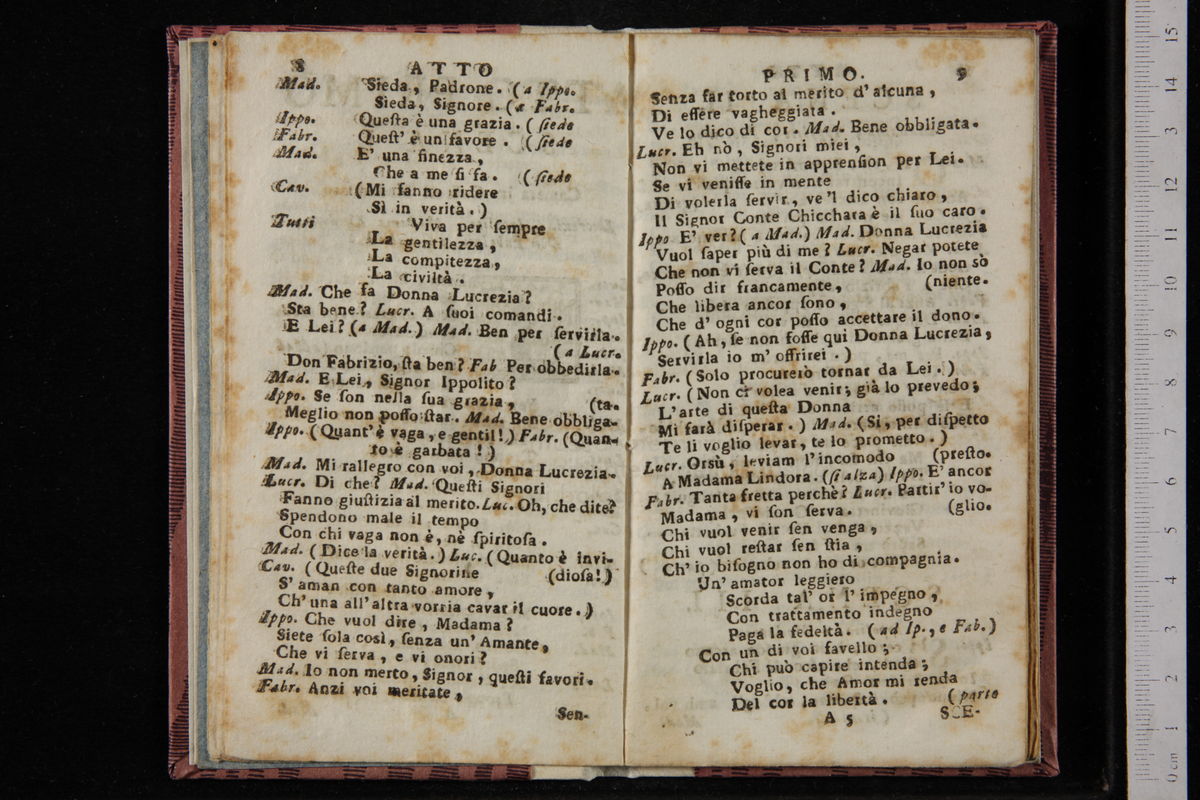 8 ATTO
Mad. Sieda, Padrone. (a Ippo.
Sieda, Signore. (a Fabr.
Ippo. Queſta è una grazia. (ſiede
Fabr. Queſt' è un favore. (ſiede
Mad. E' una finezza,
Che a me ſi fa. (ſiede
Cav. (Mi fanno ridere
Sì in verità.)
Tutti Viva per ſempre
La gentilezza,
La compitezza,
La civiltà.
Mad. Che fa Donna Lucrezia?
Sta bene? Lucr. A ſuoi comandi.
E Lei? (a Mad.) Mad. Ben per ſervirla.
(a Lucr.
Don Fabrizio, ſta ben? Fab Per obbedirla.
Mad. E Lei, Signor Ippolito?
Ippo. Se ſon nella ſua grazia, (ta.
Meglio non poſſo ſtar. Mad. Bene obbliga-
Ippo. (Quant' è vaga, e gentil!) Fabr. (Quan-
to è garbata!)
Mad. Mi rallegro con voi, Donna Lucrezia.
Lucr. Di che? Mad. Queſti Signori
Fanno giuſtizia al merito. Luc. Oh, che dite?
Spendono male il tempo
Con chi vaga non è, nè ſpiritoſa.
Mad. (Dice la verità.) Luc. (Quanto è invi-
Cav. (Queſte due Signorine (dioſa!)
S' aman con tanto amore,
Ch' una all' altra vorria cavar il cuore.)
Ippo. Che vuol dire, Madama?
Siete ſola così, ſenza un' Amante,
Che vi ſerva, e vi onori?
Mad. Io non merto, Signor, queſti favori.
Fabr. Anzi voi meritate,
Sen-
PRIMO. 9
Senza far torto al merito d' alcuna,
Di eſſere vagheggiata.
Ve lo dico di cor. Mad. Bene obbligata.
Lucr. Eh nò, Signori miei,
Non vi mettete in apprenſion per Lei.
Se vi veniſſe in mente
Di volerla ſervir, ve 'l dico chiaro,
Il Signor Conte Chicchara è il ſuo caro.
Ippo E' ver? (a Mad.) Mad. Donna Lucrezia
Vuol ſaper più di me? Lucr. Negar potete
Che non vi ſerva il Conte? Mad. Io non sò
Poſſo dir francamente, (niente.
Che libera ancor ſono,
Che d' ogni cor poſſo accettare il dono.
Ippo. (Ah, ſe non foſſe qui Donna Lucrezia,
Servirla io m' offrirei.)
Fabr. (Solo procurerò tornar da Lei.)
Lucr. (Non ci volea venir; già lo prevedo;
L'arte di queſta Donna
Mi farà diſperar.) Mad. (Si, per diſpetto
Te li voglio levar, te lo prometto.)
Lucr. Orsù, leviam l'incomodo (preſto.
A Madama Lindora. (ſi alza) Ippo. E' ancor
Fabr. Tanta fretta perchè? Lucr. Partir' io vo-
Madama, vi ſon ſerva. (glio.
Chi vuol venir ſen venga,
Chi vuol reſtar ſen ſtia,
Ch' io biſogno non ho di compagnia.
Un' amator leggiero
Scorda tal' or l' impegno,
Con trattamento indegno
Paga la fedeltà. (ad Ip., e Fab.)
Con un di voi favello;
Chi può capire intenda;
Voglio, che Amor mi renda
Del cor la libertà. (parte
A 5 SCE-